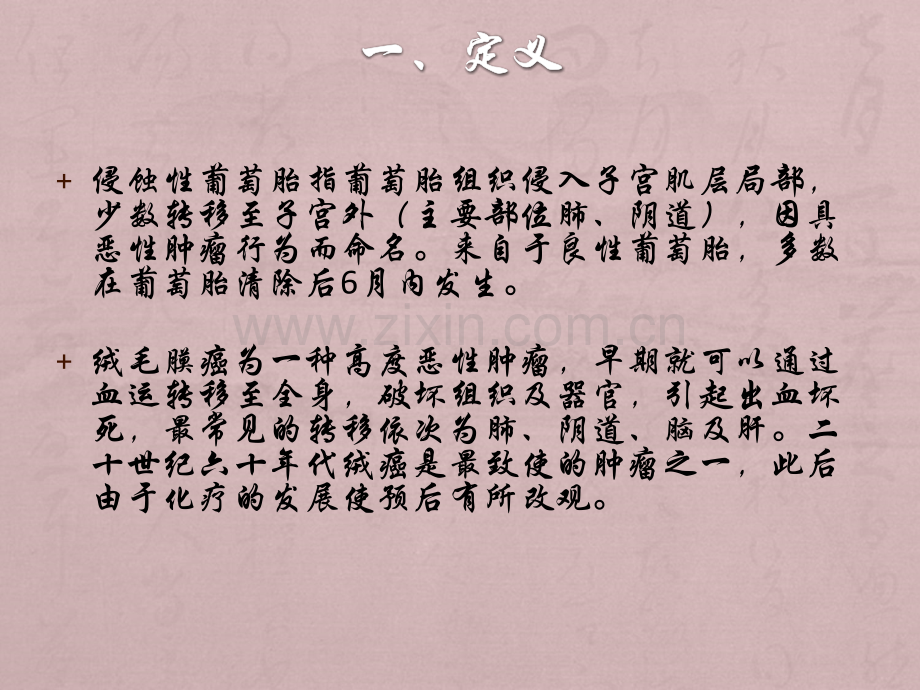 一、定义
+ 侵蚀性葡萄胎指葡萄胎组织侵入子宫肌层局部，
少数转移至子宫外（主要部位肺、阴道），因具
恶性肿瘤行为而命名。来自于良性葡萄胎，多数
在葡萄胎清除后6月内发生。
www.zixin.com.cn
+ 绒毛膜癌为一种高度恶性肿瘤，早期就可以通过
血运转移至全身，破坏组织及器官，引起出血坏
死，最常见的转移依次为肺、阴道、脑及肝。二
十世纪六十年代绒癌是最致使的肿瘤之一，此后
由于化疗的发展使预后有所改观。